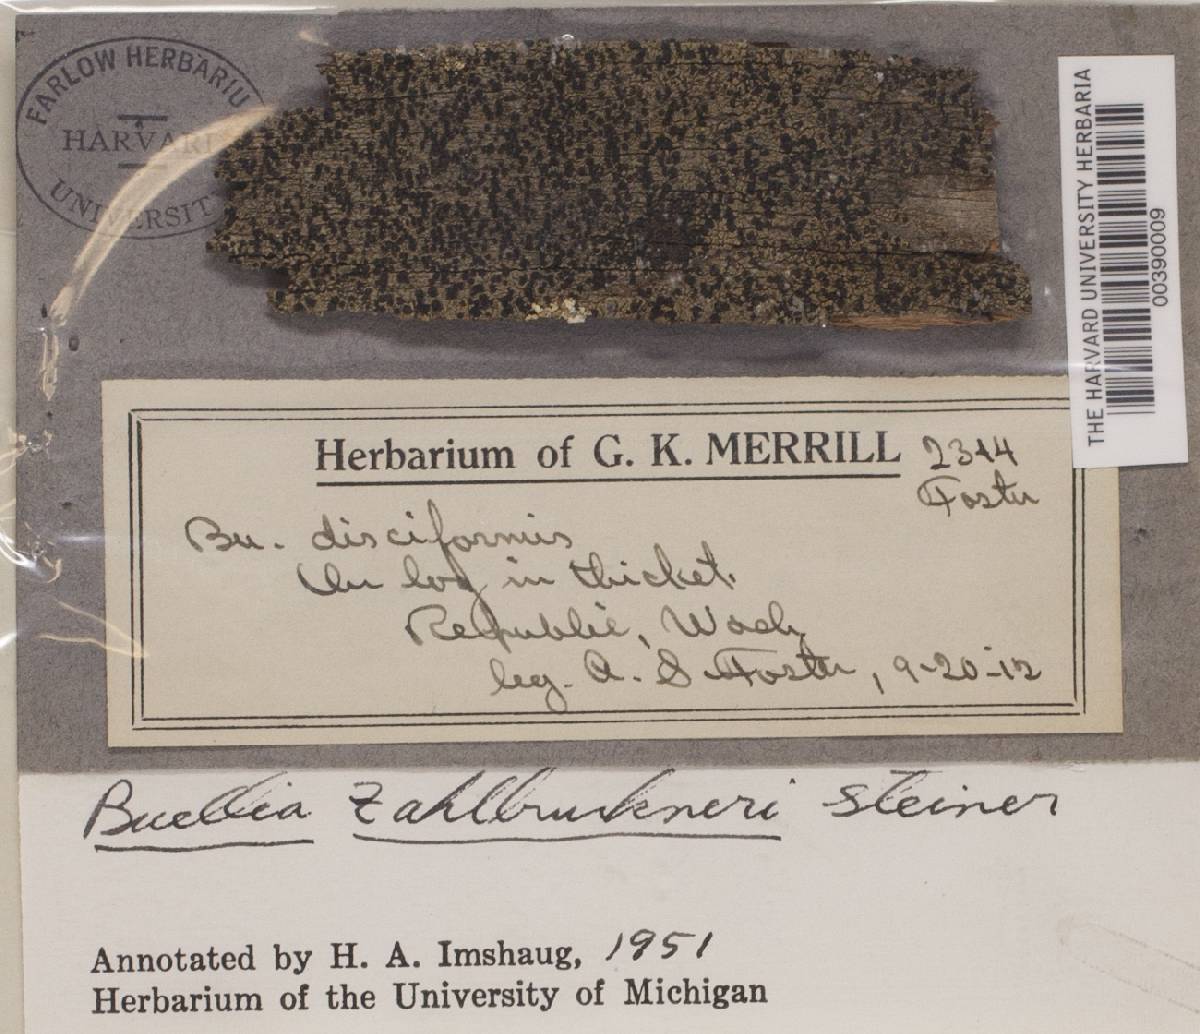 FARLOW HERBARIU
HARVARD
UNIVERSIT
THE HARVARD UNIVERSITY HERBARIA
00390009
Herbarium of G. K. MERRILL 2344
Foster
Bu. disciformis
On log in thicket.
Republic, Wash
leg. A. S. Foster, 9-20-12
Buellia Zahlbruckneri Steiner
Annotated by H. A. Imshaug, 1951
Herbarium of the University of Michigan